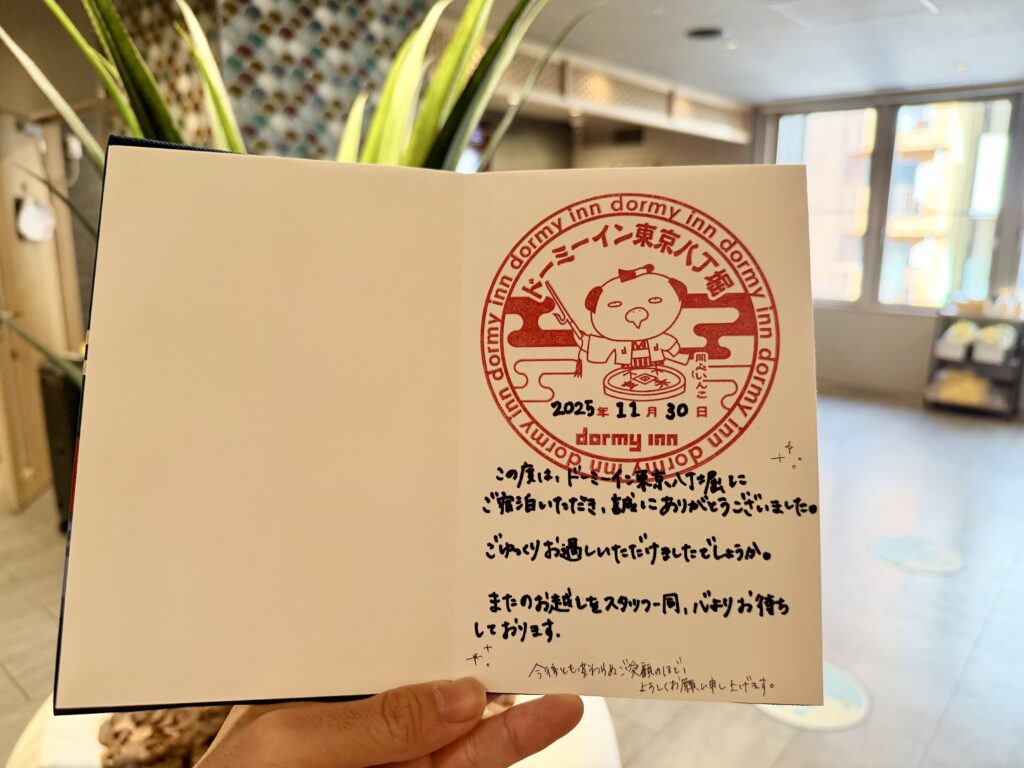 dormy inn dormy inn dormy inn dormy inn dormy inn dormy inn
ドーミーイン東京八丁堀
同心いんこ
2025年 11月 30日
dormy inn
この度は、ドーミーイン東京八丁堀に
ご宿泊いただき、誠にありがとうございました。
ごゆっくりお過しいただけましたでしょうか。
またのお越しをスタッフ一同、心よりお待ち
しております.
今後とも変わりぬご愛顧のほど、
よろしくお願い申し上げます。